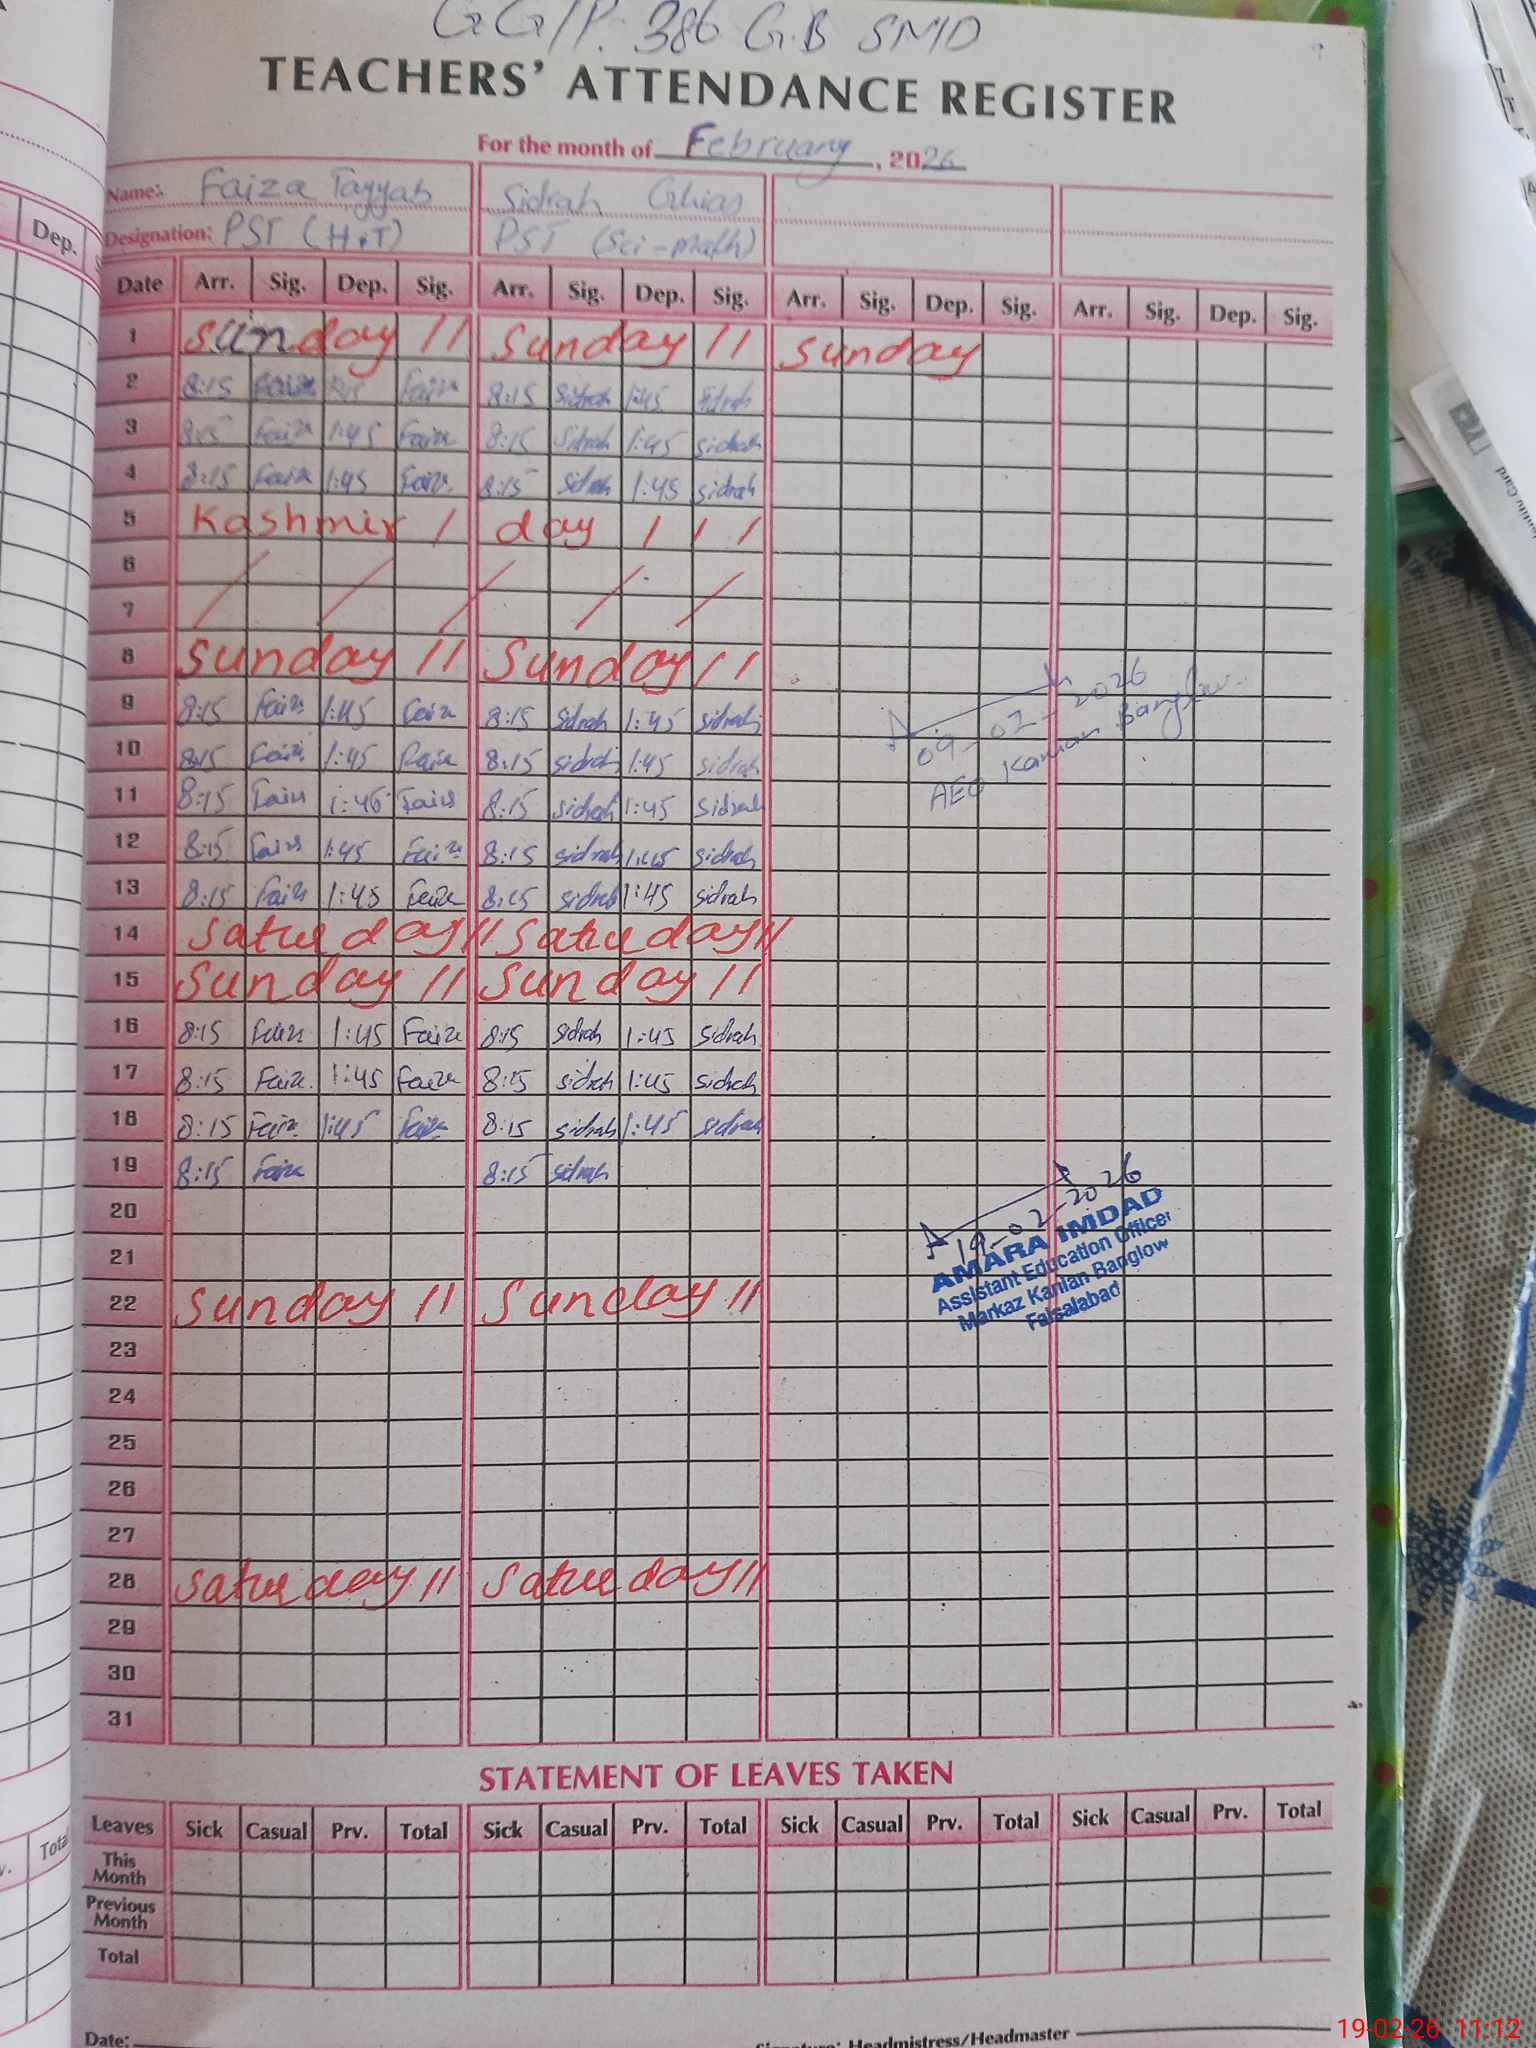 GG/P. 386 G.B SMD
TEACHERS' ATTENDANCE REGISTER
For the month of February, 2026
Name: Faiza Tayyab Sidrah Ghias
Designation: PST (H.T) PST (Sci-math)
Date Arr. Sig. Dep. Sig. Arr. Sig. Dep. Sig. Arr. Sig. Dep. Sig. Arr. Sig. Dep. Sig.
1 Sunday // Sunday // Sunday
2 8:15 Faiza Faiza 8:15 Sidrah 1:45 Sidrah
3 8:15 Faiza 1:45 Faiza 8:15 Sidrah 1:45 Sidrah
4 8:15 Faiza 1:45 Faiza 8:15 Sidrah 1:45 Sidrah
5 Kashmir / day / / /
6
7
8 Sunday // Sunday //
9 8:15 Faiza 1:45 Faiza 8:15 Sidrah 1:45 Sidrah
10 8:15 Faiza 1:45 Faiza 8:15 Sidrah 1:45 Sidrah
11 8:15 Faiza 1:46 Faiza 8:15 Sidrah 1:45 Sidrah
12 8:15 Faiza 1:45 Faiza 8:15 Sidrah 1:45 Sidrah
13 8:15 Faiza 1:45 Faiza 8:15 Sidrah 1:45 Sidrah
14 Saturday // Saturday //
15 Sunday // Sunday //
16 8:15 Faiza 1:45 Faiza 8:15 Sidrah 1:45 Sidrah
17 8:15 Faiza 1:45 Faiza 8:15 Sidrah 1:45 Sidrah
18 8:15 Faiza 1:45 Faiza 8:15 Sidrah 1:45 Sidrah
19 8:15 Faiza 8:15 Sidrah
20
21
22 Sunday // Sunday //
23
24
25
26
27
28 Saturday // Saturday //
29
30
31
09-02-2026
AEO Kanian Banglow
19-02-2026
AMARA IMDAD
Assistant Education Officer
Markaz Kanian Banglow
Faisalabad
STATEMENT OF LEAVES TAKEN
Leaves Sick Casual Prv. Total Sick Casual Prv. Total Sick Casual Prv. Total Sick Casual Prv. Total
This Month
Previous Month
Total
Date:
Signature: Headmistress/Headmaster
Dep.
Total
19-02-26 11:12